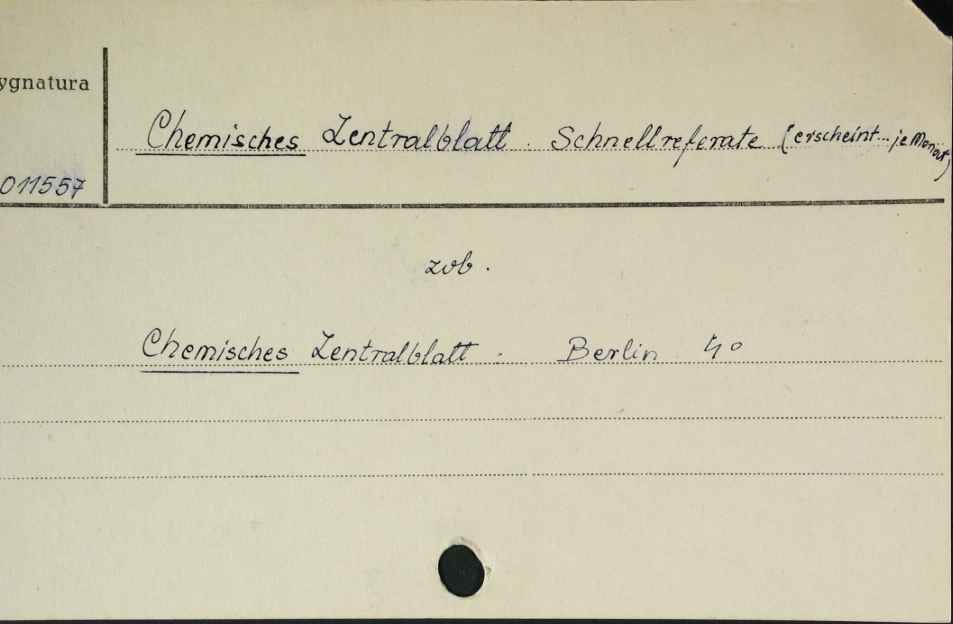 ygnatura
Chemisches Zentralblatt. Schnellreferate (erscheint... je Monat)
011557
zob.
Chemisches Zentralblatt. Berlin 4°